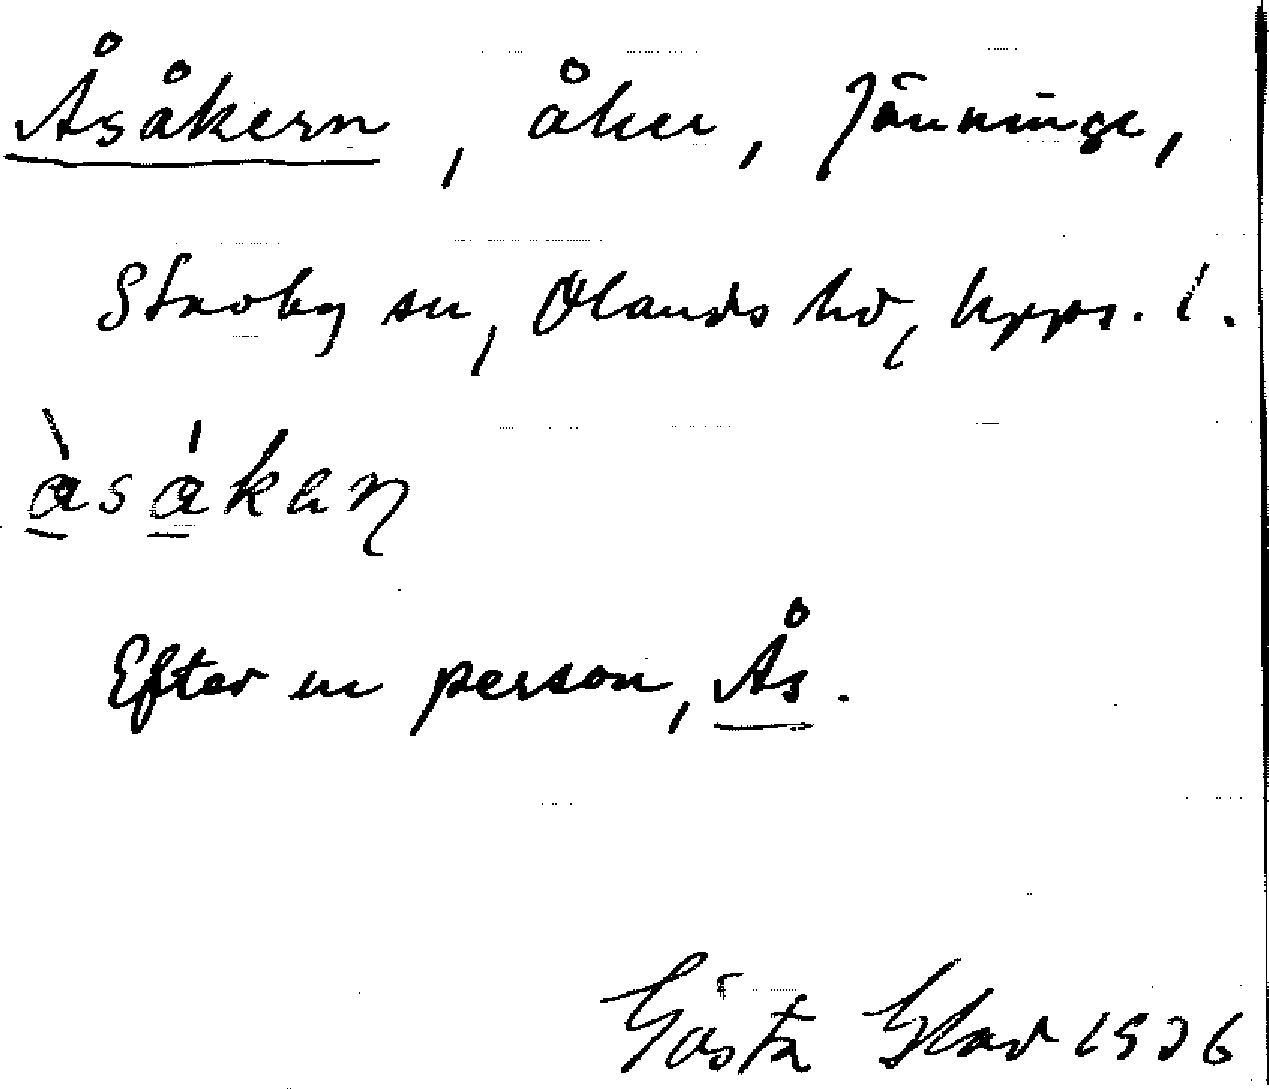 Åsåkern, åker, Jönninge,
Skoby sn, Olands hd, Upps. l.
Efter en person, Ås.
Gösta Glad 1936